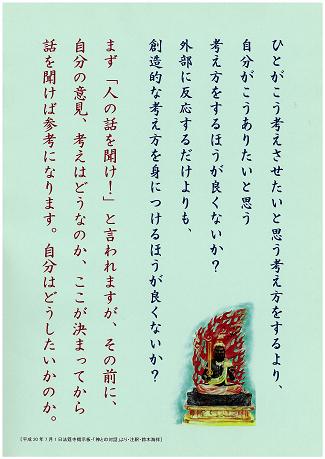 ひとがこう考えさせたいと思う考え方をするより、
自分がこうありたいと思う
考え方をするほうが良くないか?
外部に反応するだけよりも、
創造的な考え方を身につけるほうが良くないか?
まず「人の話を聞け!」と言われますが、その前に、
自分の意見、考えはどうなのか、ここが決まってから
話を聞けば参考になります。自分はどうしたいかのか。
[平成30年7月1日法話寺掲示板・「神との対話」より・注釈・鈴木海祥]